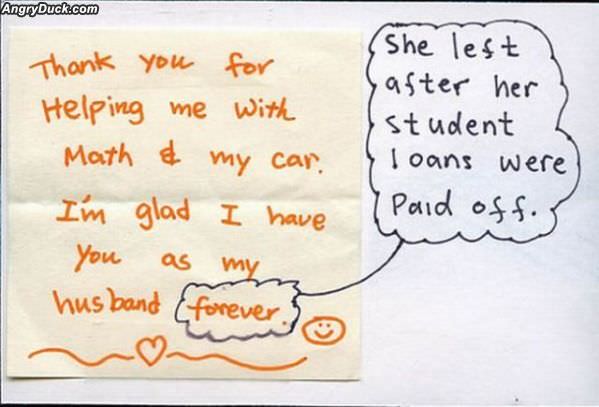 AngryDuck.com
Thank you for
Helping me with
Math & my car.
I'm glad I have
you as my
husband forever.
She left
after her
student
loans were
Paid off.